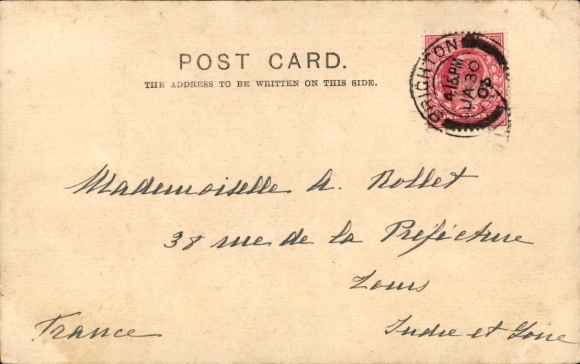 POST CARD.
THE ADDRESS TO BE WRITTEN ON THIS SIDE.
BRIGHTON
4.15 PM
JA 30
Mademoiselle A. Rollet
38 rue de la Préfecture
Tours
France Indre et Loire